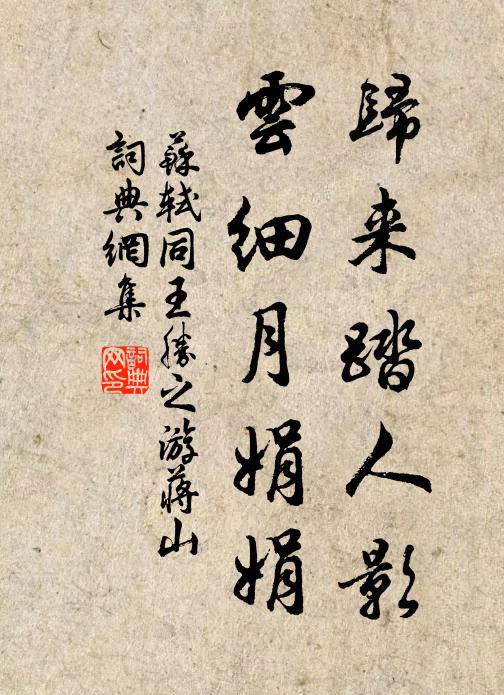 歸来踏人影
雲細月娟娟
蘇軾同王勝之游蔣山
詞典網集
詞典
网印